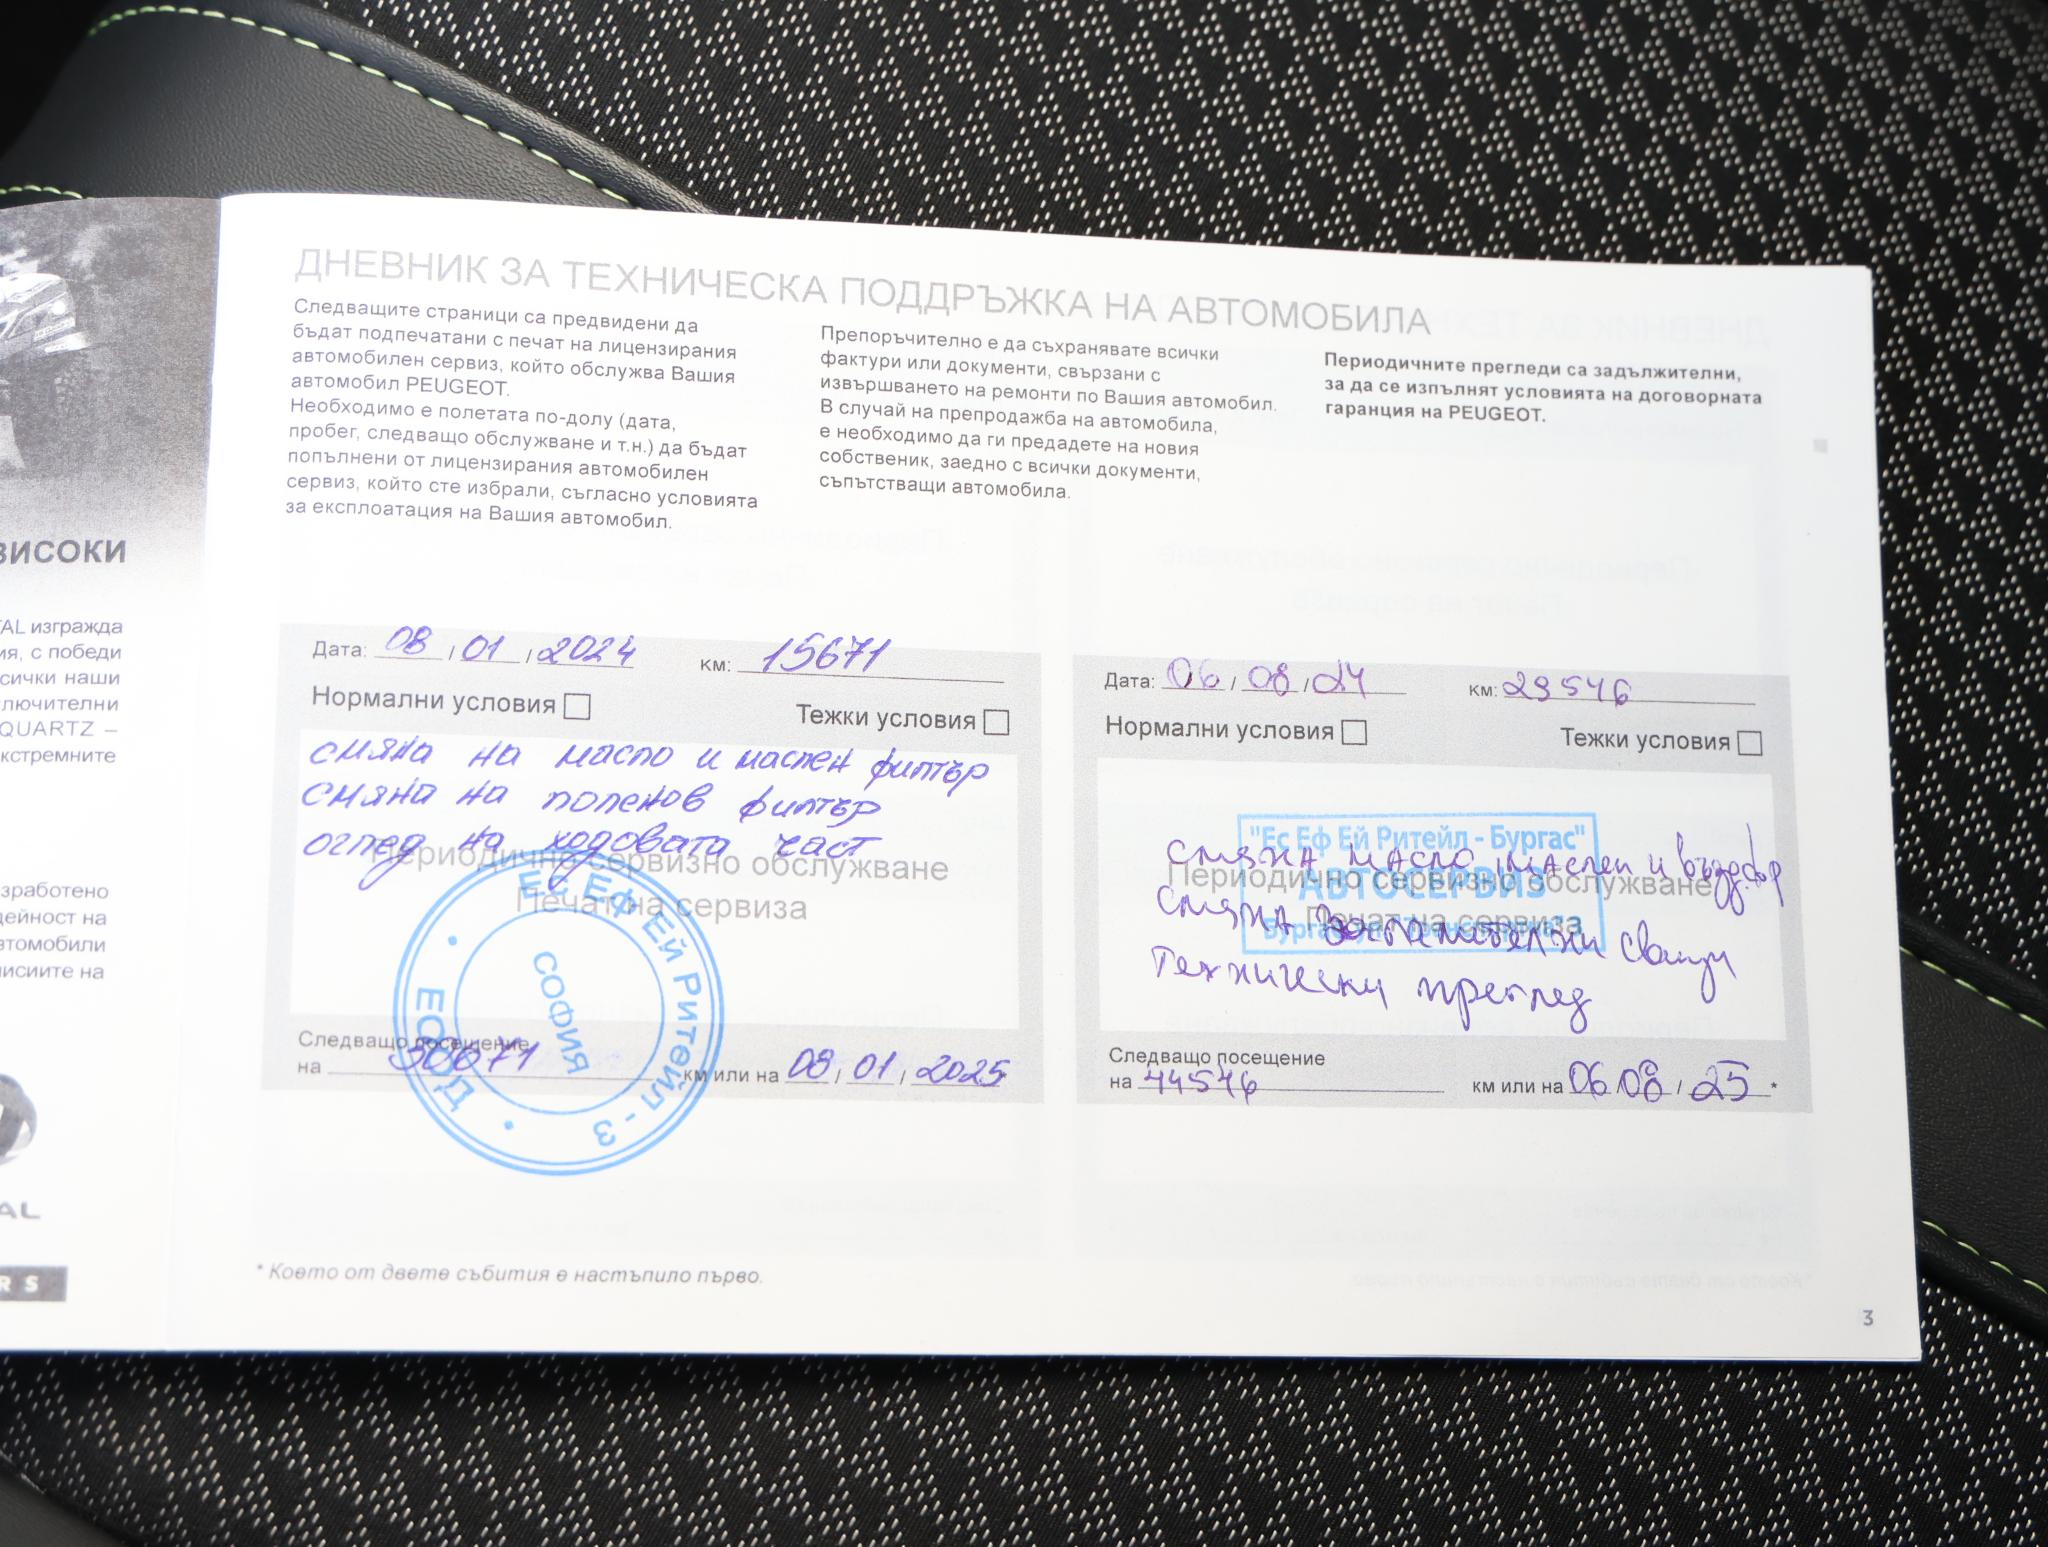 ВИСОКИ
TAL изгражда
ия, с победи
сички наши
ключителни
QUARTZ –
кстремните
зработено
дейност на
втомобили
писиите на
AL
R S
ДНЕВНИК ЗА ТЕХНИЧЕСКА ПОДДРЪЖКА НА АВТОМОБИЛА
Следващите страници са предвидени да
бъдат подпечатани с печат на лицензирания
автомобилен сервиз, който обслужва Вашия
автомобил PEUGEOT.
Необходимо е полетата по-долу (дата,
пробег, следващо обслужване и т.н.) да бъдат
попълнени от лицензирания автомобилен
сервиз, който сте избрали, съгласно условията
за експлоатация на Вашия автомобил.
Препоръчително е да съхранявате всички
фактури или документи, свързани с
извършването на ремонти по Вашия автомобил.
В случай на препродажба на автомобила,
е необходимо да ги предадете на новия
собственик, заедно с всички документи,
съпътстващи автомобила.
Периодичните прегледи са задължителни,
за да се изпълнят условията на договорната
гаранция на PEUGEOT.
Дата: 08 / 01 / 2024 км: 15671
Нормални условия Тежки условия
смяна на масло и маслен филтър
смяна на поленов филтър
оглед на ходовата част
Периодично сервизно обслужване
Печат на сервиза
Ес Еф Ей Ритейл - 3 ЕООД
СОФИЯ
Следващо посещение
на 30671 км или на 08 / 01 / 2025 *
Дата: 06 / 08 / 24 км: 29546
Нормални условия Тежки условия
"Ес Еф Ей Ритейл - Бургас"
АВТОСЕРВИЗ
смяна масло, маслен и възд. ф-р
Периодично сервизно обслужване
Печат на сервиза
смяна запалителни свещи
Технически преглед
Следващо посещение
на 44546 км или на 06 08 / 25 *
* Което от двете събития е настъпило първо.
3